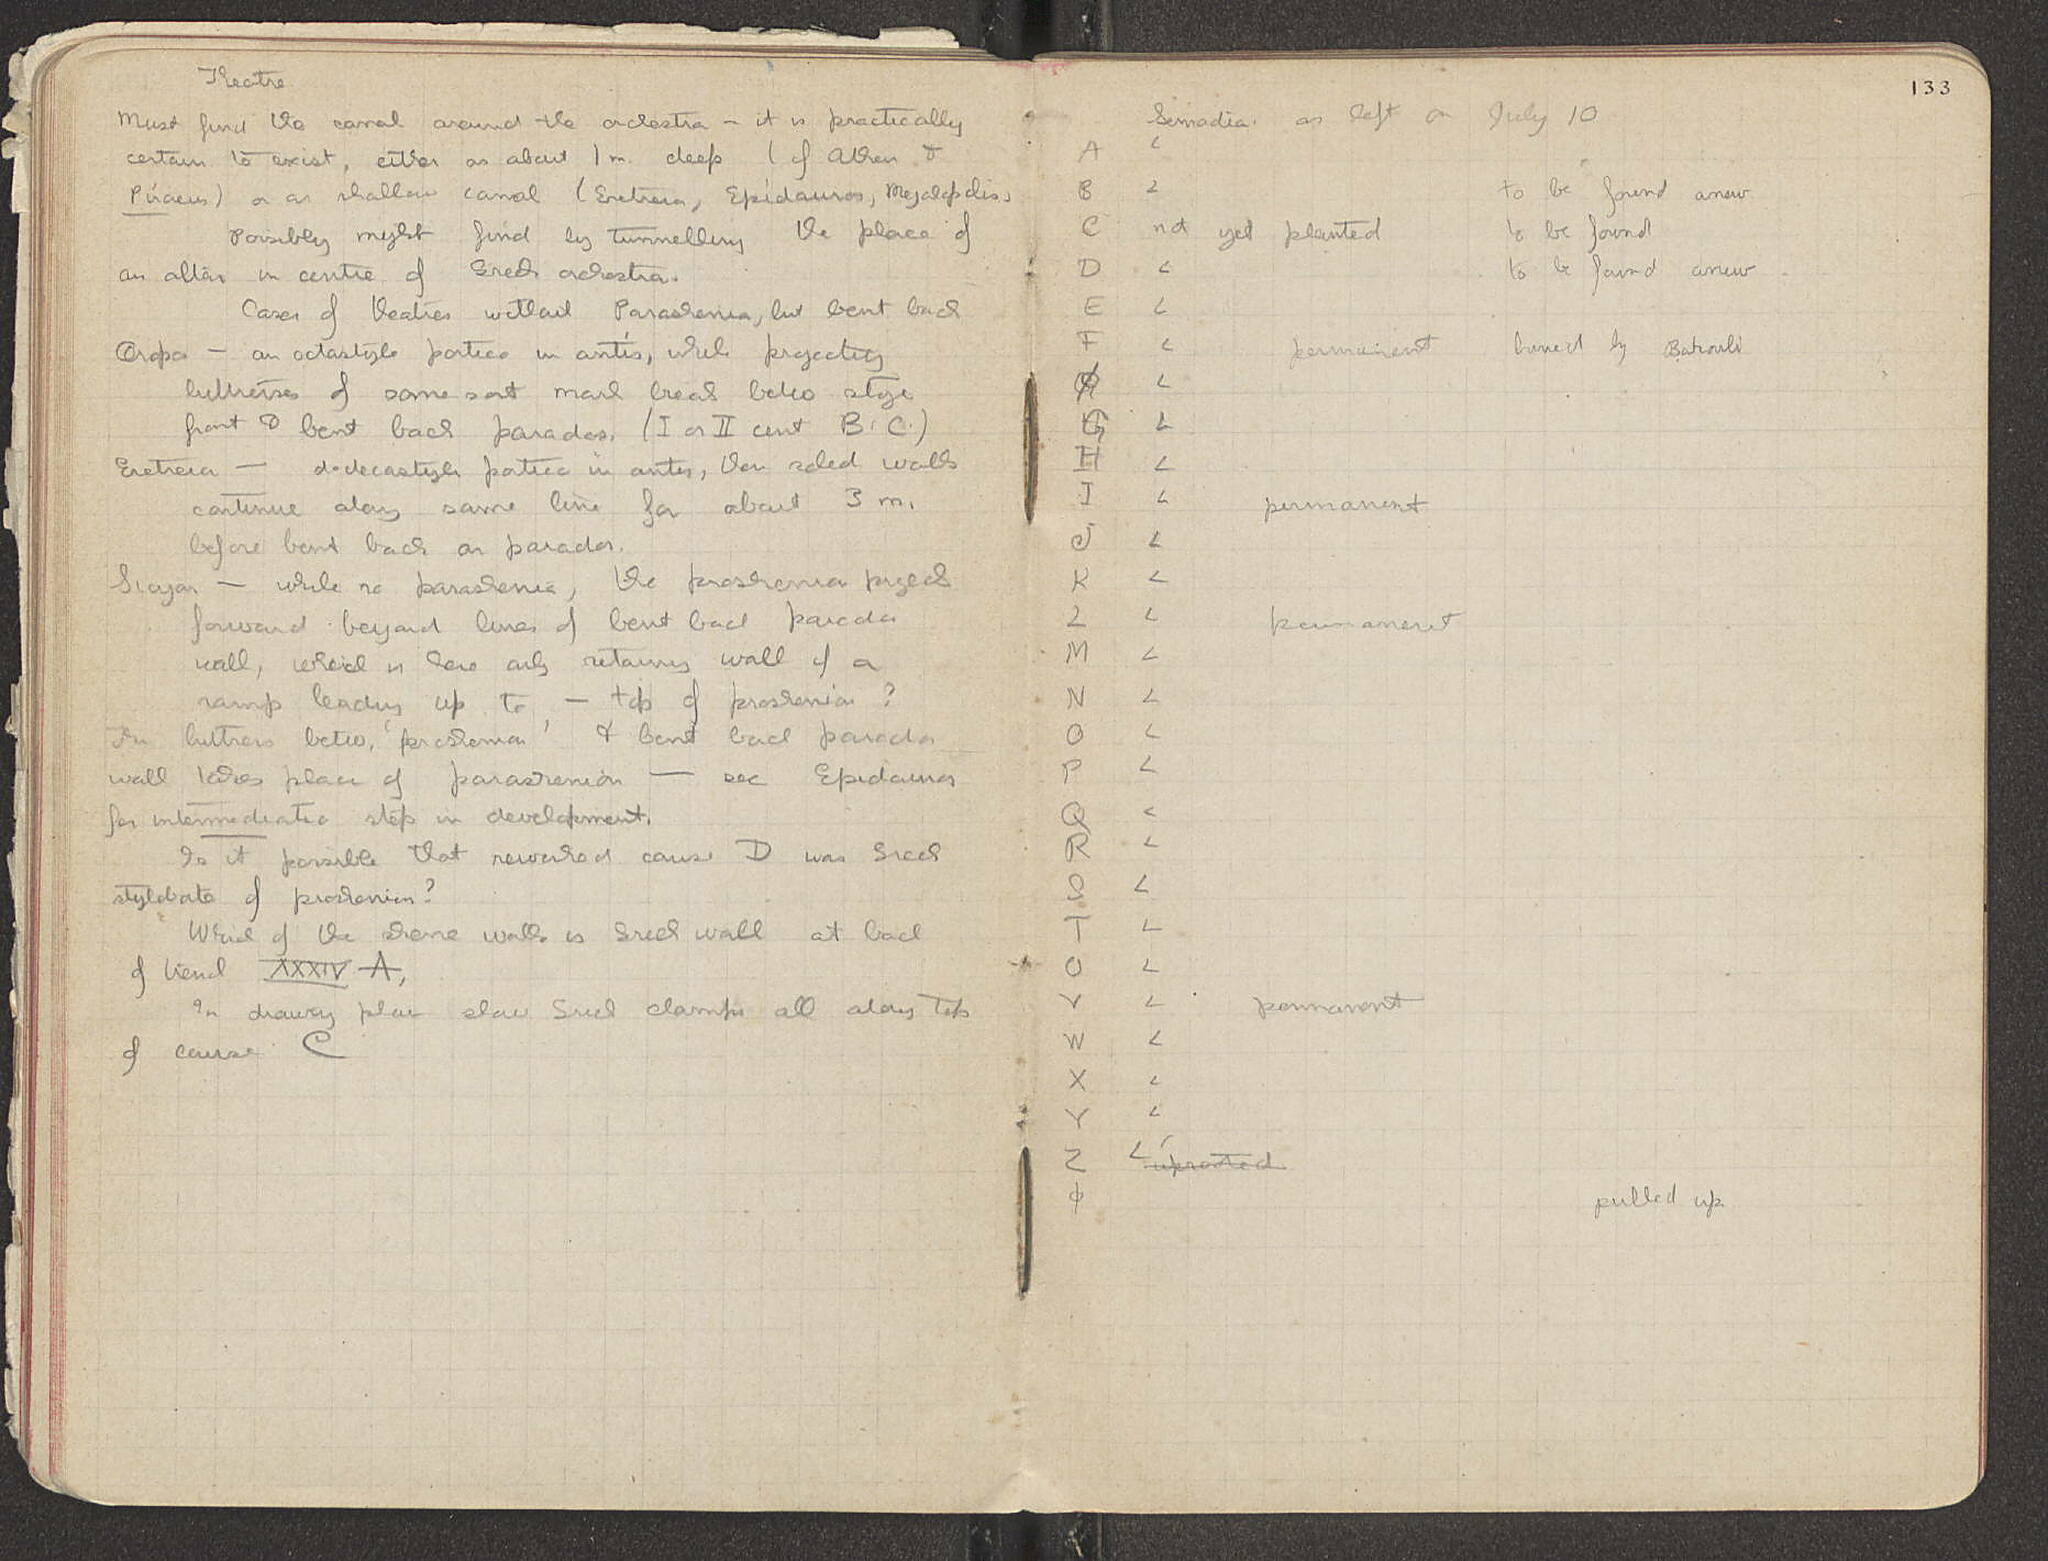 Theatre
Must find the canal around the orchestra - it is practically
certain to exist, either as about 1 m. deep (cf Athen &
Piraeus) or as shallow canal (Eretreia, Epidauros, Megalopolis,
Possibly might find by tunnelling the place of
an altar in centre of Greek orchestra.
Cases of theatres without Paraskenia, but bent back
Oropos — an octastyle portico in antis, while projecting
buttresses of some sort mark break betw stage
front & bent back parados. (I or II cent B.C.)
Eretreia — dodecastyle portico in antis, then solid walls
continue along same line for about 3 m.
before bent back as parados.
Sicyon — while no paraskenia, the proskenion projects
forward beyond lines of bent back parodos
wall, which is here only retaining wall of a
ramp leading up to — top of proskenion?
The buttress betw. 'proskenion' & bent back parodos
wall takes place of paraskenion — see Epidauros
for intermediate step in development.
Is it possible that reworked course D was Greek
stylobate of proskenion?
Which of the skene walls is Greek wall at back
of trench XXXIV A,
In drawing plan show Greek clamps all along top
of course C
133
Semadia as left on July 10
A <
B < to be found anew
C not yet planted to be found
D < to be found anew
E <
F < permanent buried by
<
G <
H <
I < permanent
J <
K <
L < permanent
M <
N <
O <
P <
Q <
R <
S <
T <
U <
V < permanent
W <
X <
Y <
Z < uprooted
φ pulled up